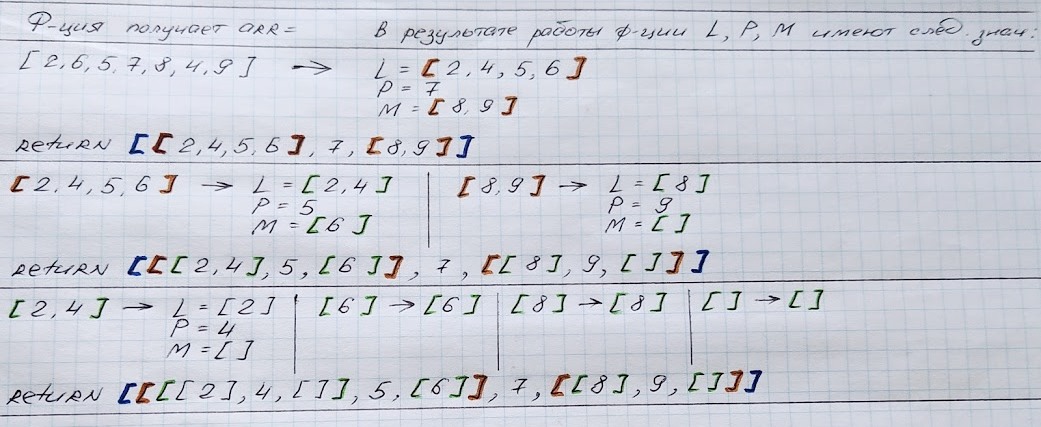 Ф-ция получает aRR =
В результате работы ф-ции L, P, M имеют след. знач:
[2,6,5,7,8,4,9] →
L = [2,4,5,6]
P = 7
M = [8,9]
RetuRN [[2,4,5,6], 7, [8,9]]
[2,4,5,6] → L = [2,4]
P = 5
M = [6]
[8,9] → L = [8]
P = 9
M = []
RetuRN [[[2,4],5,[6]], 7, [[8],9,[]]]
[2,4] → L = [2]
P = 4
M = []
[6] → [6]
[8] → [8]
[] → []
RetuRN [[[[2],4,[]],5,[6]], 7, [[8],9,[]]]